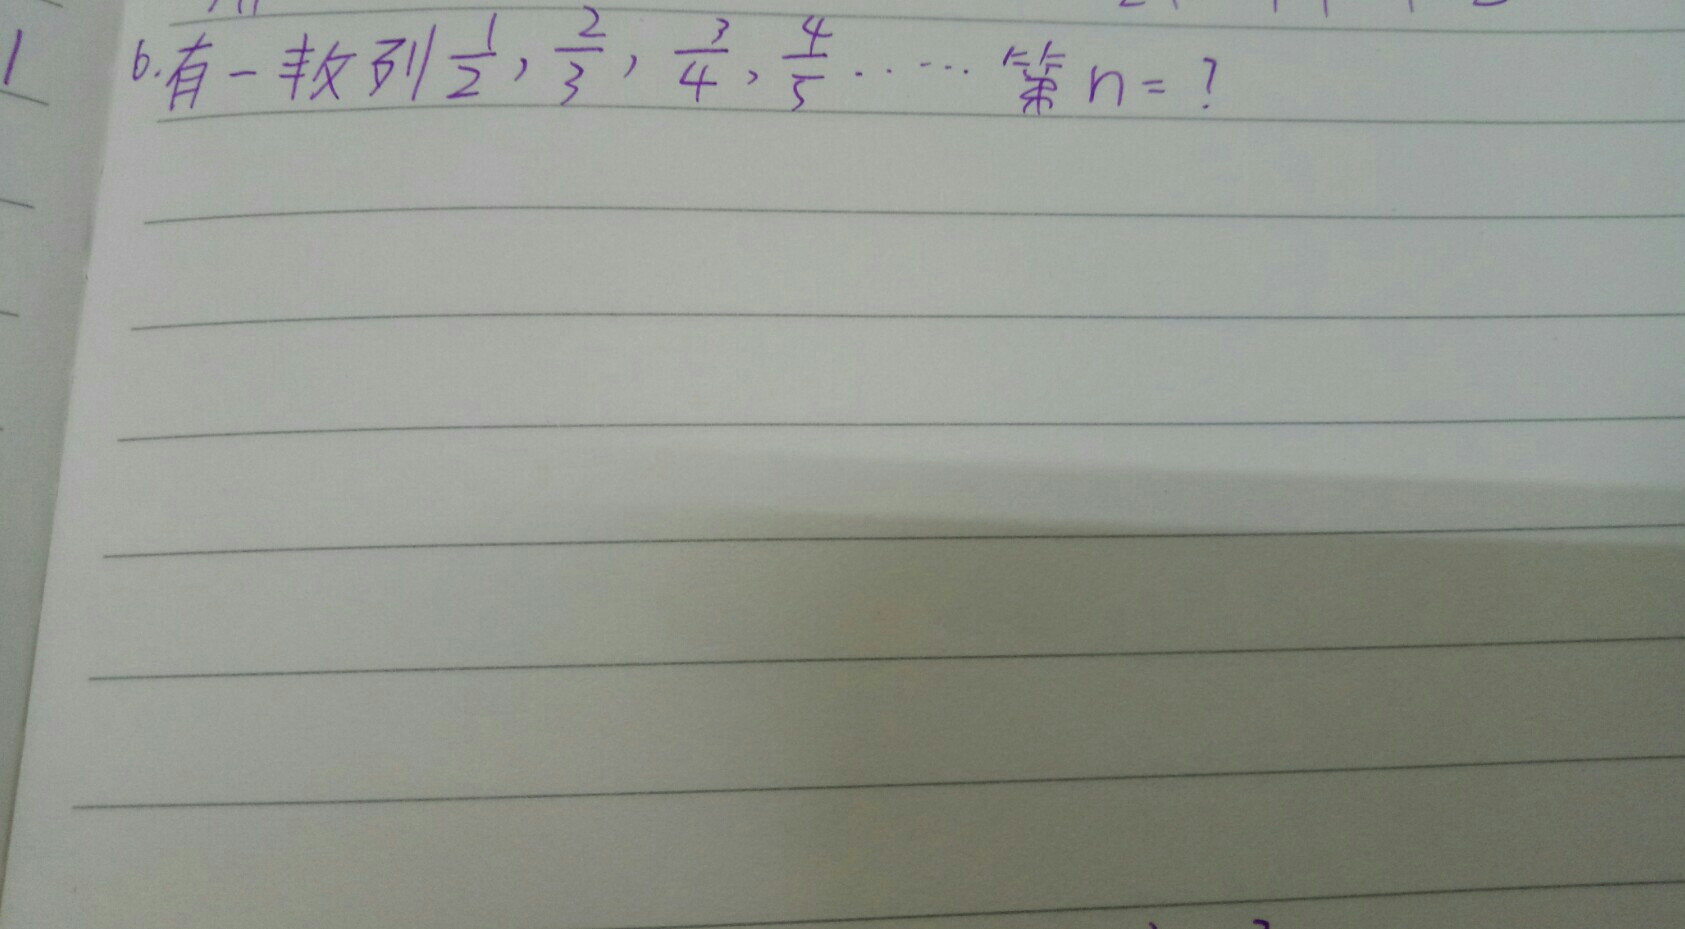 6.有一数列 1/2, 2/3, 3/4, 4/5 …… 第n=?